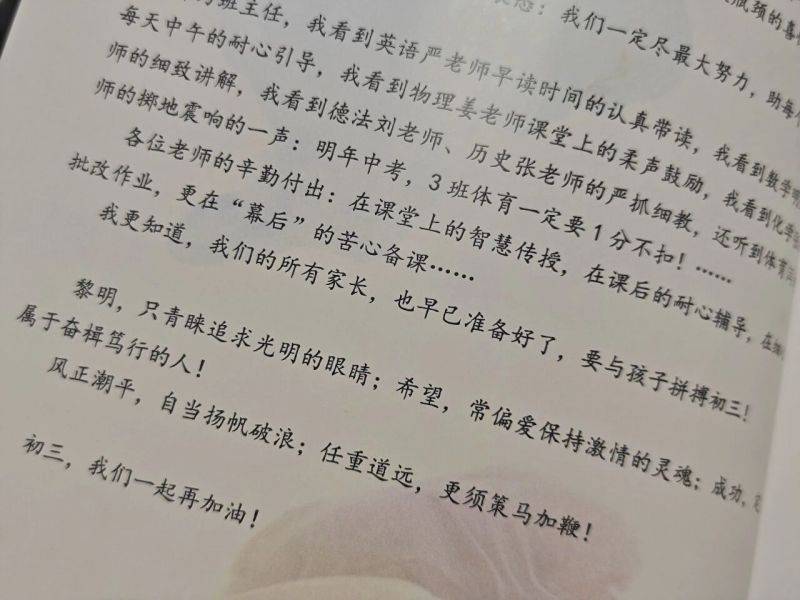 瓶颈的喜
的班主任，我看到英语严老师早读时间的认真带读，我看到数学
每天中午的耐心引导，我看到物理姜老师课堂上的柔声鼓励，我看到化学
师的细致讲解，我看到德法刘老师、历史张老师的严抓细教，还听到体育
师的掷地震响的一声：明年中考，3班体育一定要1分不扣！……
各位老师的辛勤付出：在课堂上的智慧传授，在课后的耐心辅导，在
批改作业，更在“幕后”的苦心备课……
我更知道，我们的所有家长，也早已准备好了，要与孩子拼搏初三！
黎明，只青睐追求光明的眼睛；希望，常偏爱保持激情的灵魂；成功，
属于奋楫笃行的人！
风正潮平，自当扬帆破浪；任重道远，更须策马加鞭！
初三，我们一起再加油！